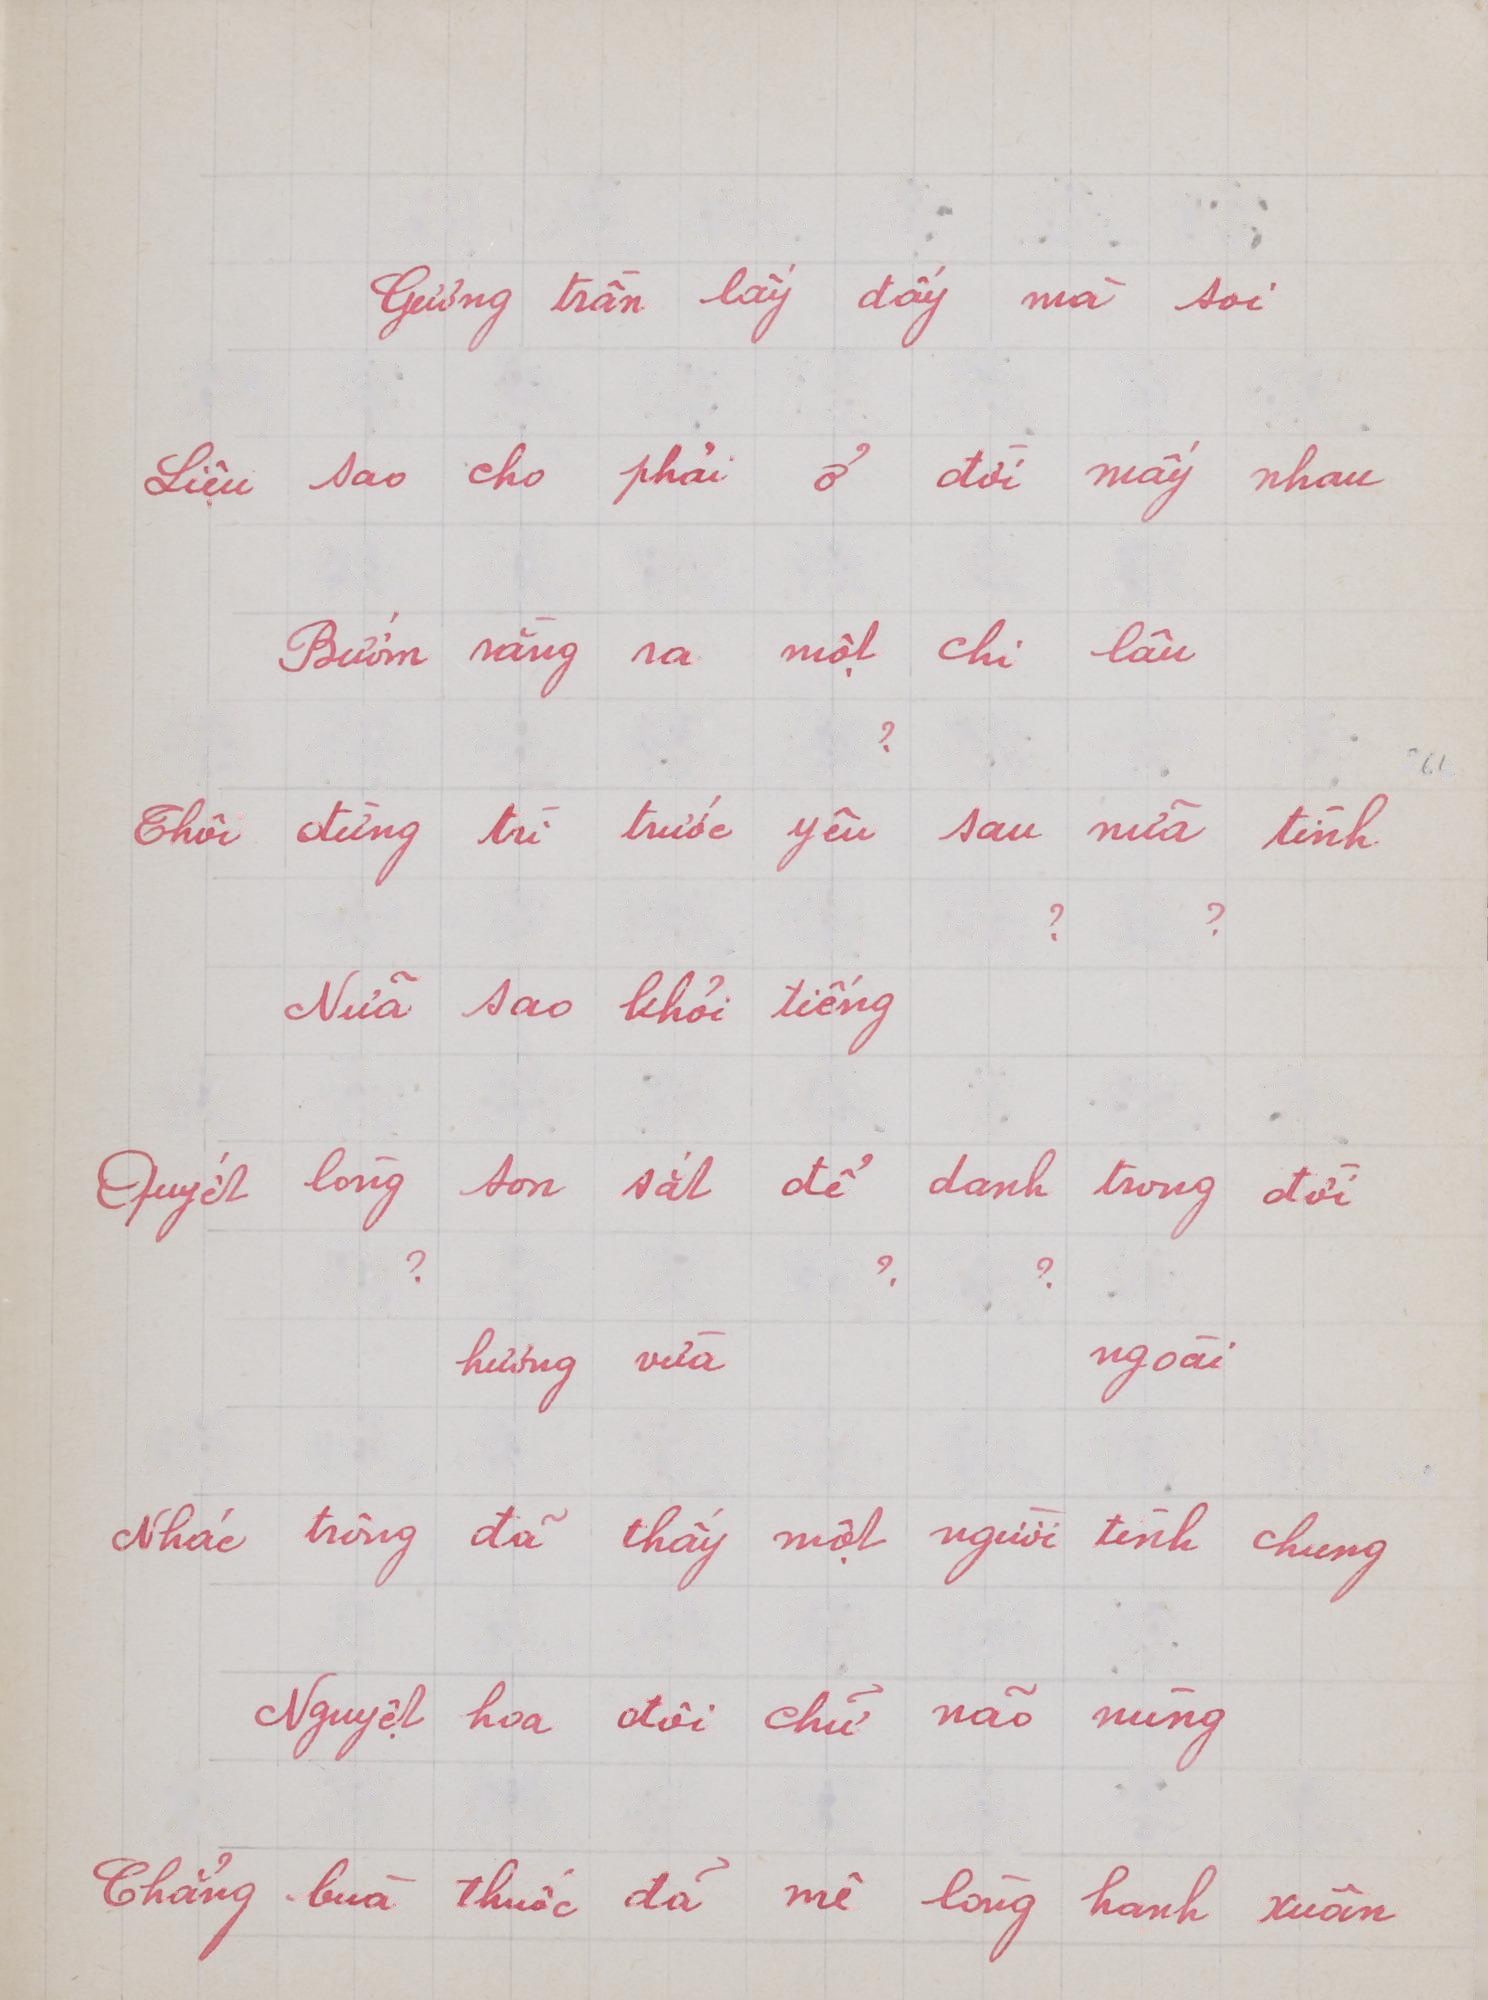 Gương trần lấy đấy mà soi
Liệu sao cho phải ở đời mấy nhau
Bướm răng ra một chi lâu
?
Thôi đừng trì trước yêu sau nữa tình
? ?
Nữa sao khỏi tiếng
Quyết lòng son sắt để danh trong đời
? ? ?
hương vừa ngoài
Nhác trông đã thấy một người tình chung
Nguyệt hoa đôi chữ não nùng
Chẳng bùa thuốc đã mê lòng hanh xuân